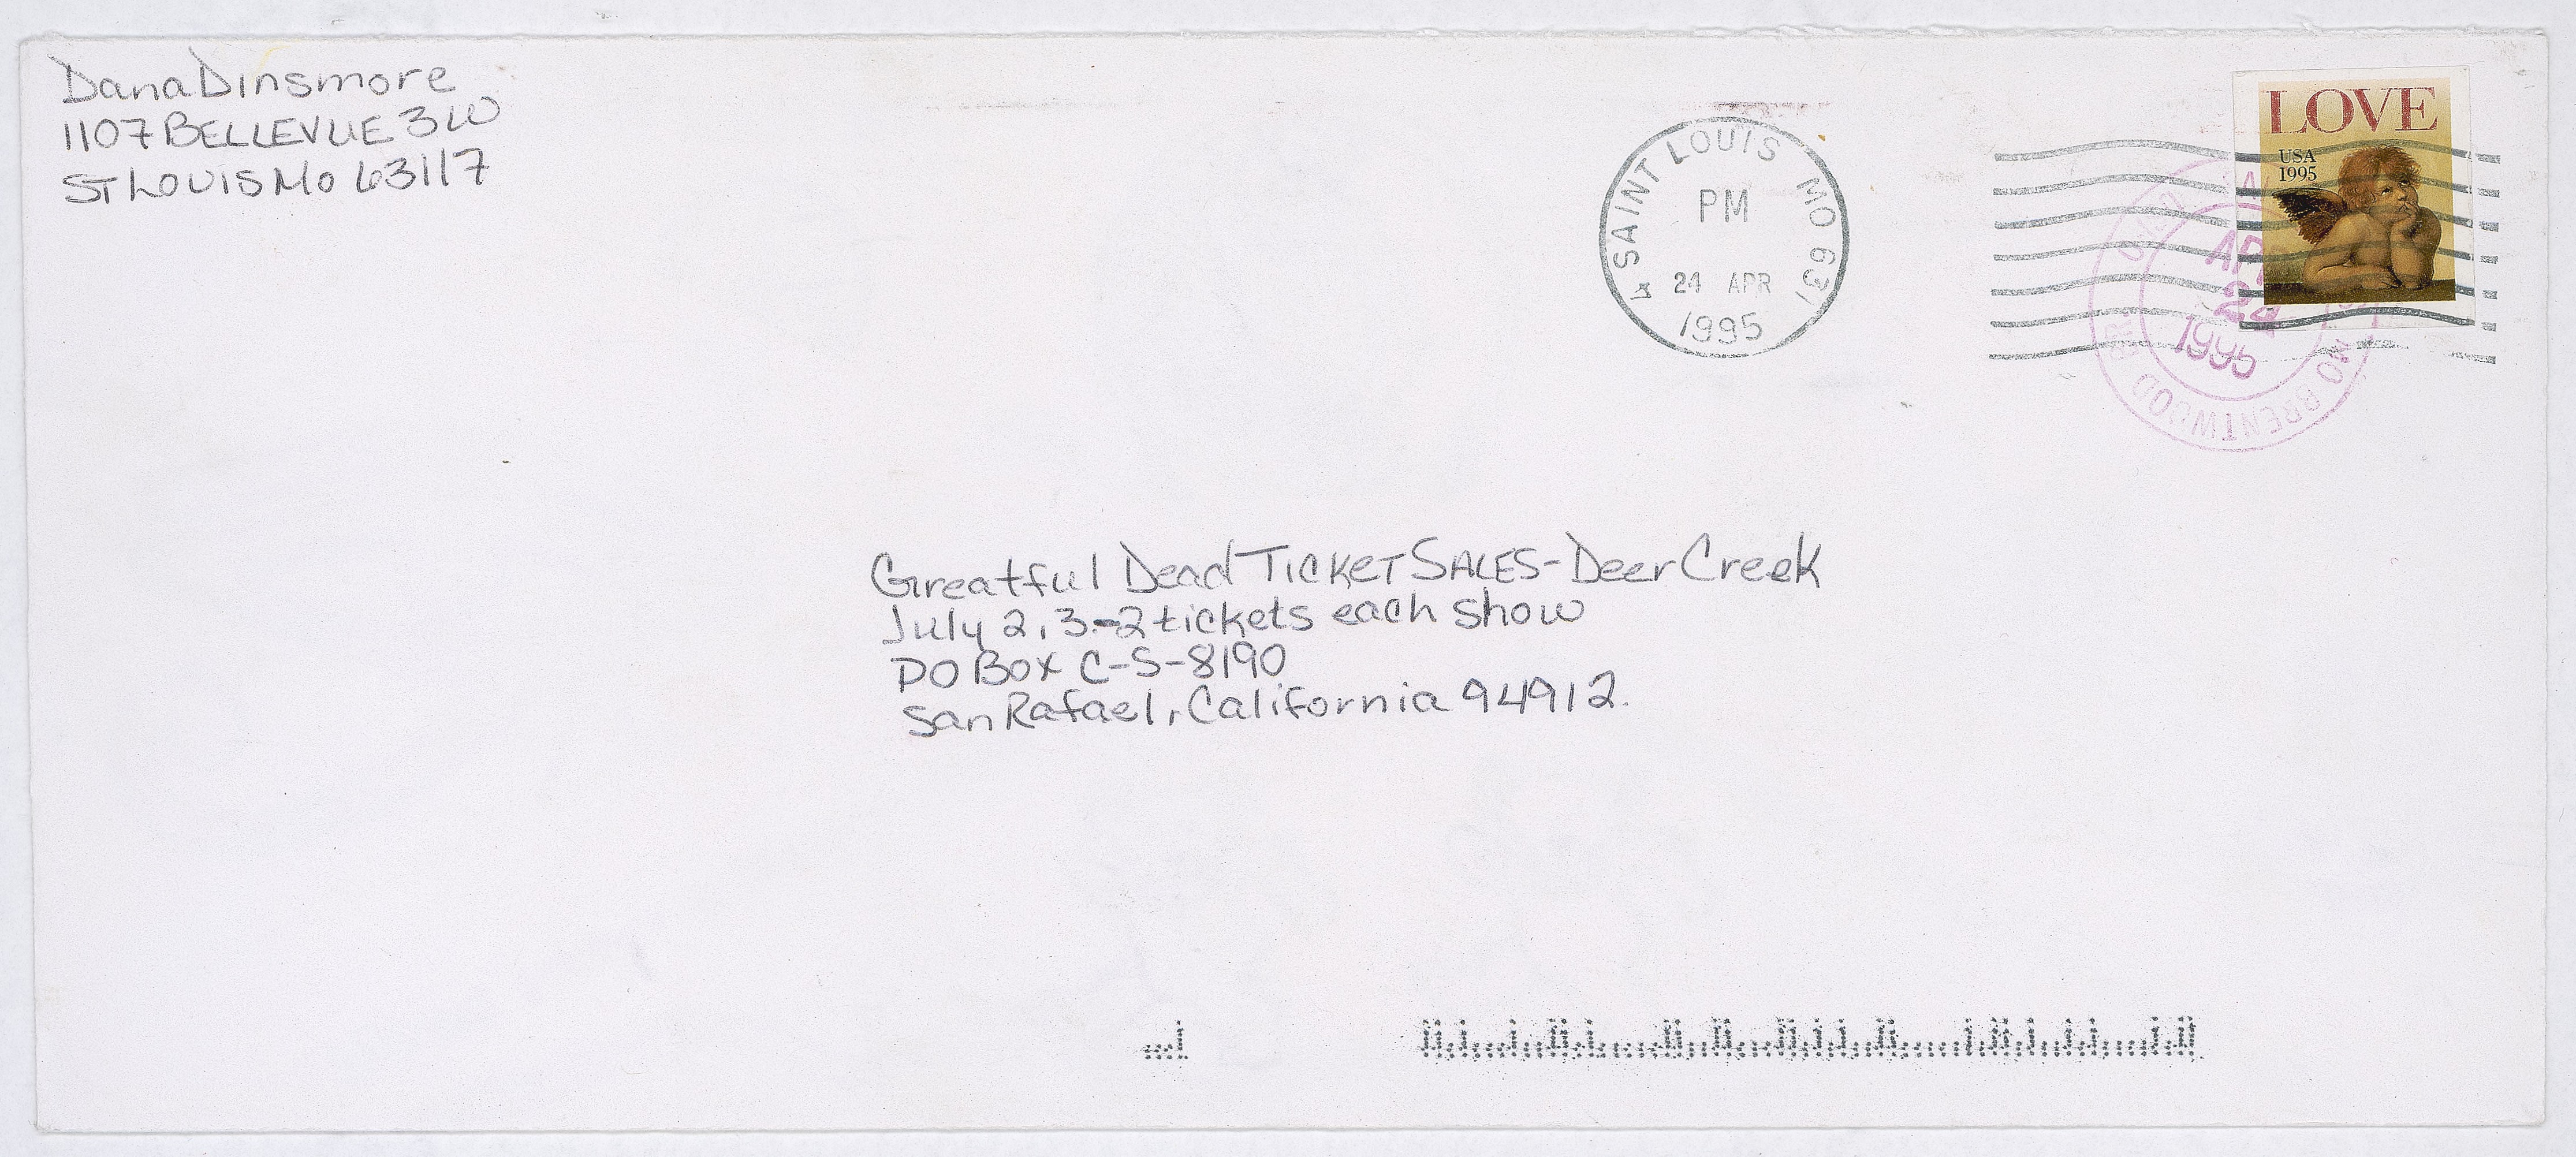 Dana Dinsmore
1107 BELLEVUE 3W
ST LOUIS MO 63117
SAINT LOUIS MO 631
PM
24 APR
1995
LOVE
USA
1995
APR
24
1995
MO BRENTWOOD BR.
Greatful Dead TICKET SALES-Deer Creek
July 2, 3.-2 tickets each show
PO BOX C-S-8190
San Rafael, California 94912.